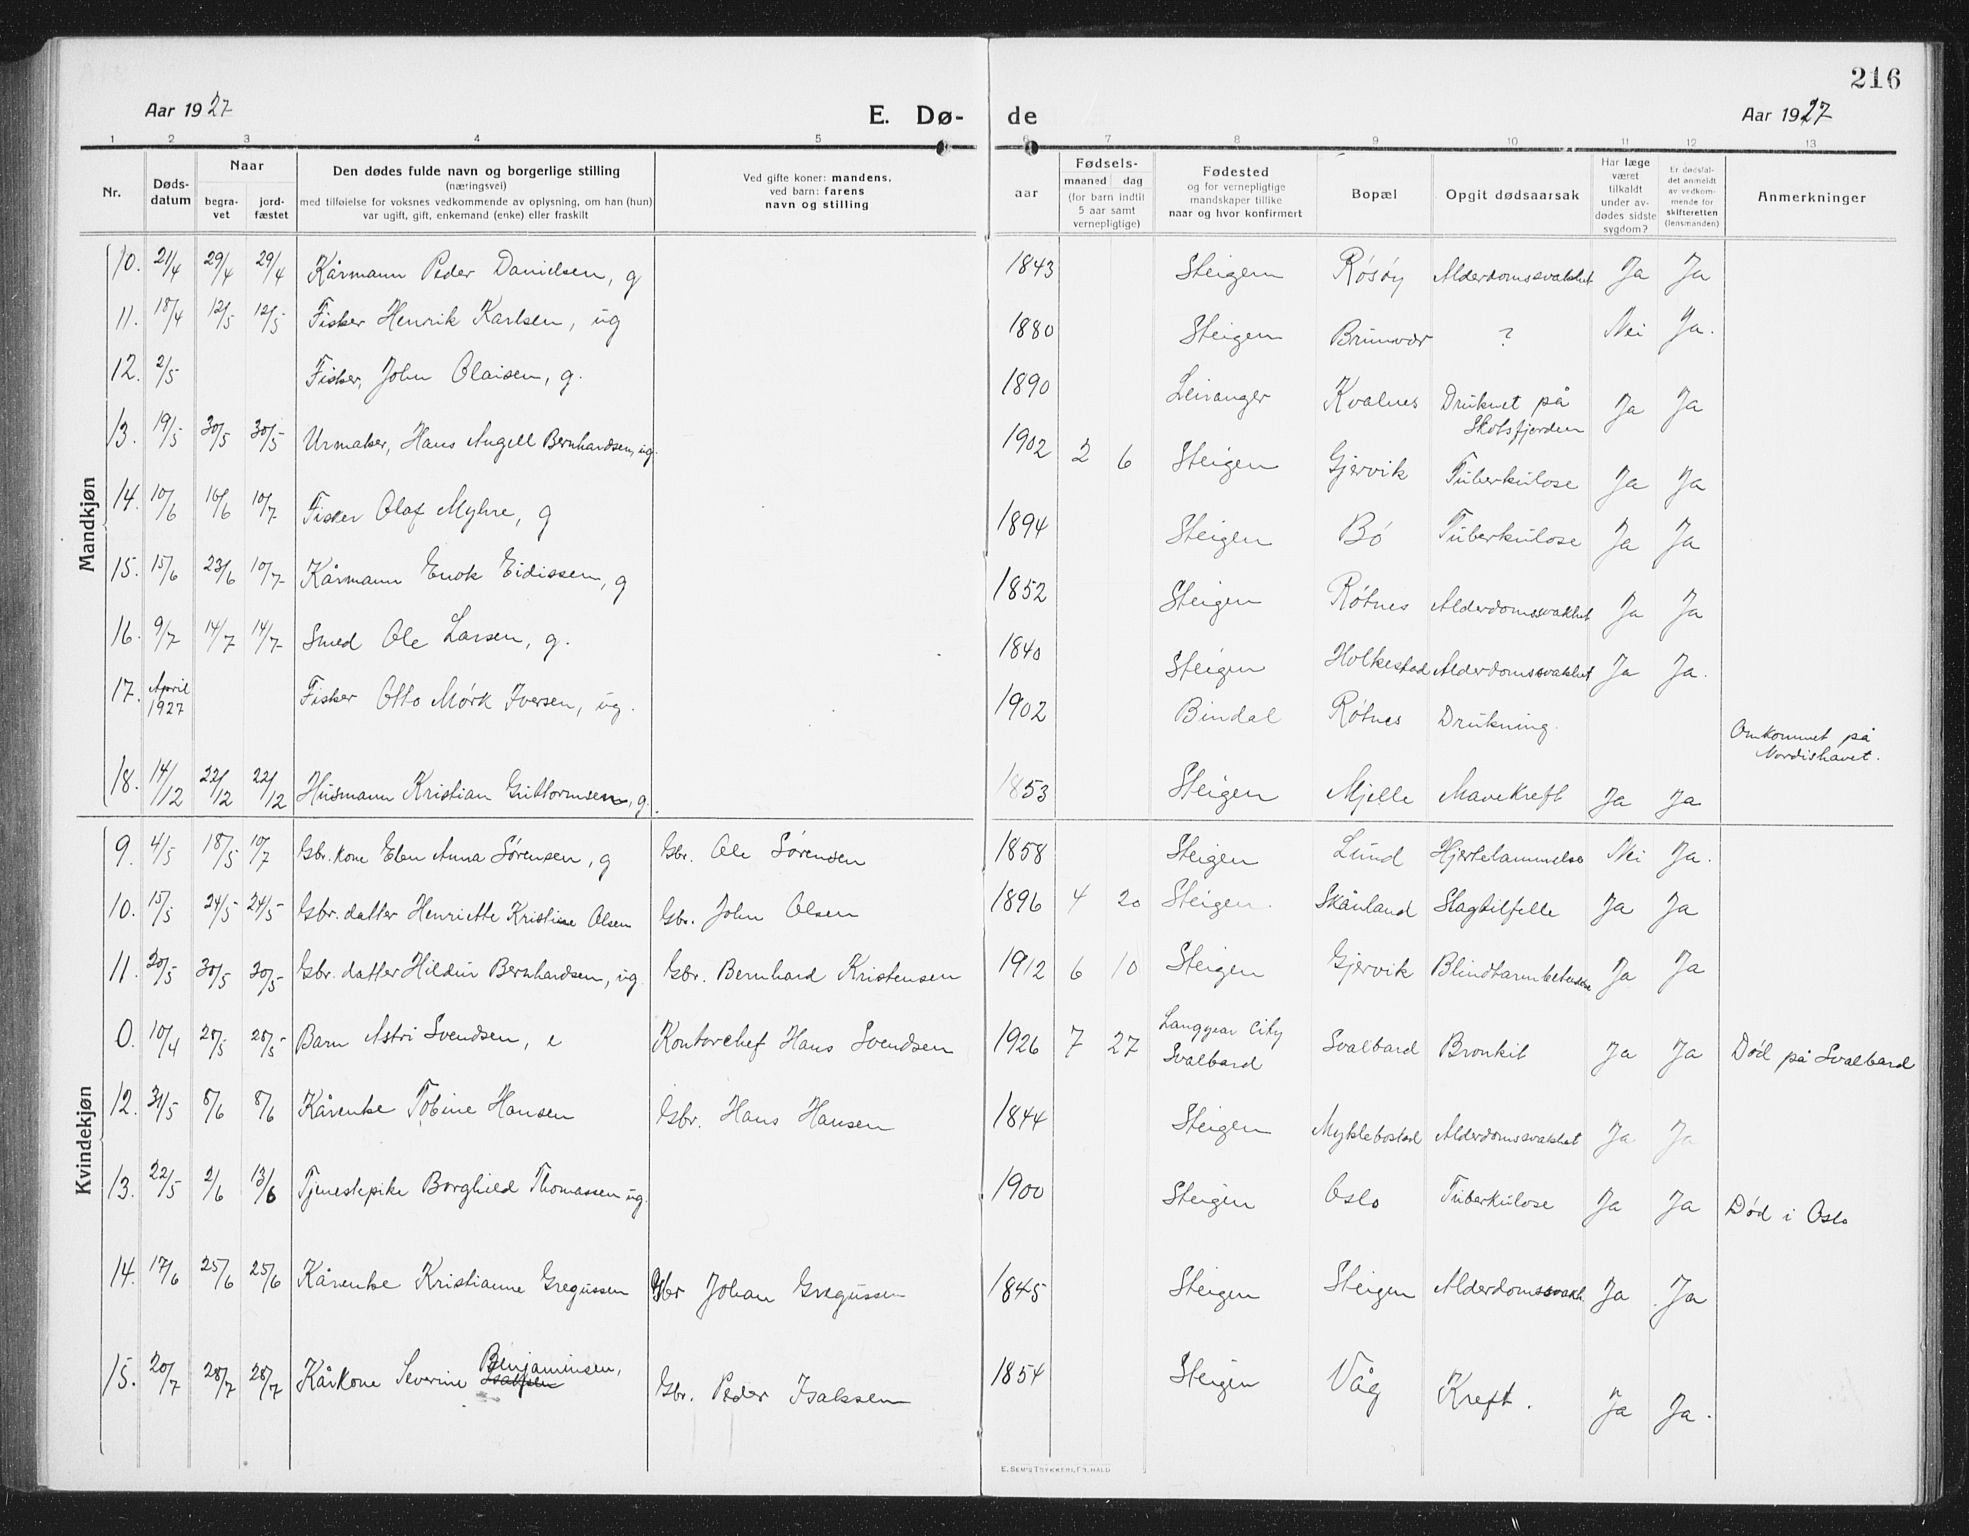 216
Aar 1927 E. Dø- de Aar 1927
1 2 3 4 5 6 7 8 9 10 11 12 13
Nr. Døds-datum Naar begra-vet jord-fæstet Den dødes fulde navn og borgerlige stilling (næringsvei) med tilføielse for voksnes vedkommende av oplysning, om han (hun) var ugift, gift, enkemand (enke) eller fraskilt Ved gifte koner: mandens, ved barn: farens navn og stilling Fødsels- aar maaned dag (for barn indtil 5 aar samt vernepligtige) Fødested og for vernepligtige mandskaper tillike naar og hvor konfirmert Bopæl Opgit dødsaarsak Har læge været tilkaldt under av-dødes sidste sygdom? Er dødsfal-det anmeldt av vedkom-mende for skifteretten (lensmanden) Anmerkninger
Mandkjøn
10. 21/4 29/4 29/4 Kårmann Peder Danielsen, g 1843 Steigen Røsøy Alderdomssvakhet Ja Ja
11. 18/4 12/5 12/5 Fisker Henrik Karlsen, ug 1880 Steigen Brunvær ? Nei Ja.
12. 2/5 Fisker, John Olaisen, g. 1890 Leiranger Kvalnes Druknet på Skotsfjorden Ja Ja
13. 19/5 30/5 30/5 Urmaker, Hans Angell Bernhardsen, ug. 1902 2 6 Steigen Gjervik Tuberkulose Ja Ja
14. 10/6 16/6 10/7 Fisker Olaf Myhre, g 1894 Steigen Bø Tuberkulose Ja Ja
15. 15/6 23/6 10/7 Kårmann Enok Eidissen, g 1852 Steigen Røtnes Alderdomssvakhet Ja Ja
16. 9/7 14/7 14/7 Smed Ole Larsen, g. 1840 Steigen Holkestad Alderdomssvakhet Ja Ja.
17. April 1927 Fisker Otto Mørk Iversen, ug. 1902 Bindal Røtnes Drukning. Omkommet på Nordishavet.
18. 14/12 22/12 22/12 Husmann Kristian Guttormsen, g. 1853 Steigen Mjelle Mavekreft Ja Ja
Kvindekjøn
9. 4/5 18/5 10/7 Gbr. kone Elen Anna Sørensen, g Gbr. Ole Sørensen 1858 Steigen Lund Hjertelammelse Nei Ja.
10. 15/5 24/5 24/5 Gbr. datter Henriette Kristine Olsen Gbr. John Olsen 1896 4 20 Steigen. Skånland Slagtilfelle Ja Ja
11. 20/5 30/5 30/5 Gbr. datter Hildur Bernhardsen, ug. Gbr. Bernhard Kristensen 1912 6 10 Steigen Gjervik Blindtarmbetendelse Ja Ja
0. 10/4 28/5 28/5 Barn Astri Svendsen, e Kontorchef Hans Svendsen 1926 7 27 Longyear City Svalbard Svalbard Bronkit Ja Ja Død på Svalbard
12. 31/5 8/6 8/6 Kårenke Tobine Hansen Gbr. Hans Hansen 1844 Steigen Myklebostad Alderdomssvakhet Ja Ja
13. 22/5 2/6 13/6 Tjenestepike Borghild Thomassen ug. 1900 Steigen Oslo Tuberkulose Ja Ja Død i Oslo
14. 17/6 25/6 25/6 Kårenke Kristianne Gregussen Gbr Johan Gregussen 1845 Steigen Steigen Alderdomssvakh. Ja Ja
15. 20/7 28/7 28/7 Kårkone Severine Isaksen Benjaminsen, Gbr. Peder Isakssen 1854 Steigen Våg Kreft. Ja Ja.
E. SEM'S TRYKKERI, FR.HALD